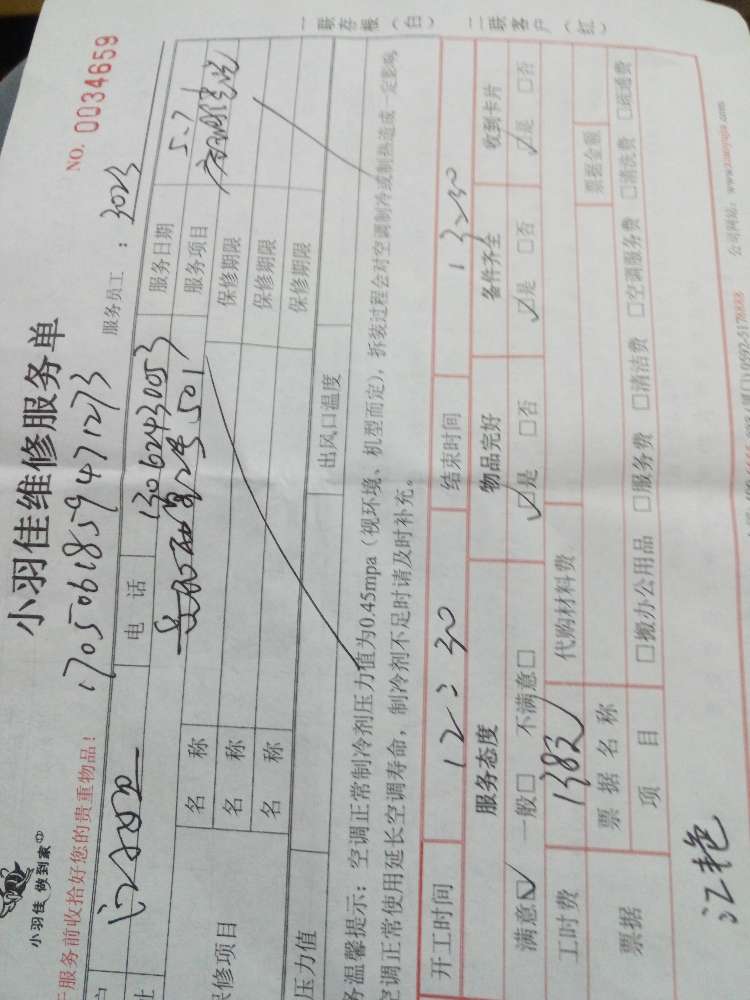 一联存根（白） 二联客户（红）
小羽佳 做到家
小羽佳维修服务单
NO. 0034659
服务前收拾好您的贵重物品！
1705061859471273
服务员工： 3023
电 话 13062430053 服务日期 5.21
2号 501 服务项目
名 称 保修期限
名 称 保修期限
修项目 名 称 保修期限
压力值 出风口温度
务温馨提示：空调正常制冷剂压力值为0.45mpa（视环境、机型而定），拆装过程会对空调制冷或制热造成一定影响
空调正常使用延长空调寿命，制冷剂不足时请及时补充。
开工时间 12:30 结束时间 13:30
服务态度 物品完好 备件齐全 收到卡片
满意☑ 一般□ 不满意□ ☑是 □否 ☑是 □否 ☑是 □否
工时费 138元 代购材料费
票据 票据名称 票据金额
项 目 □搬办公用品 □服务费 □清洁费 □空调服务费 □清洗费 □疏通费
江艳
公司网站：www.xmxyj.com